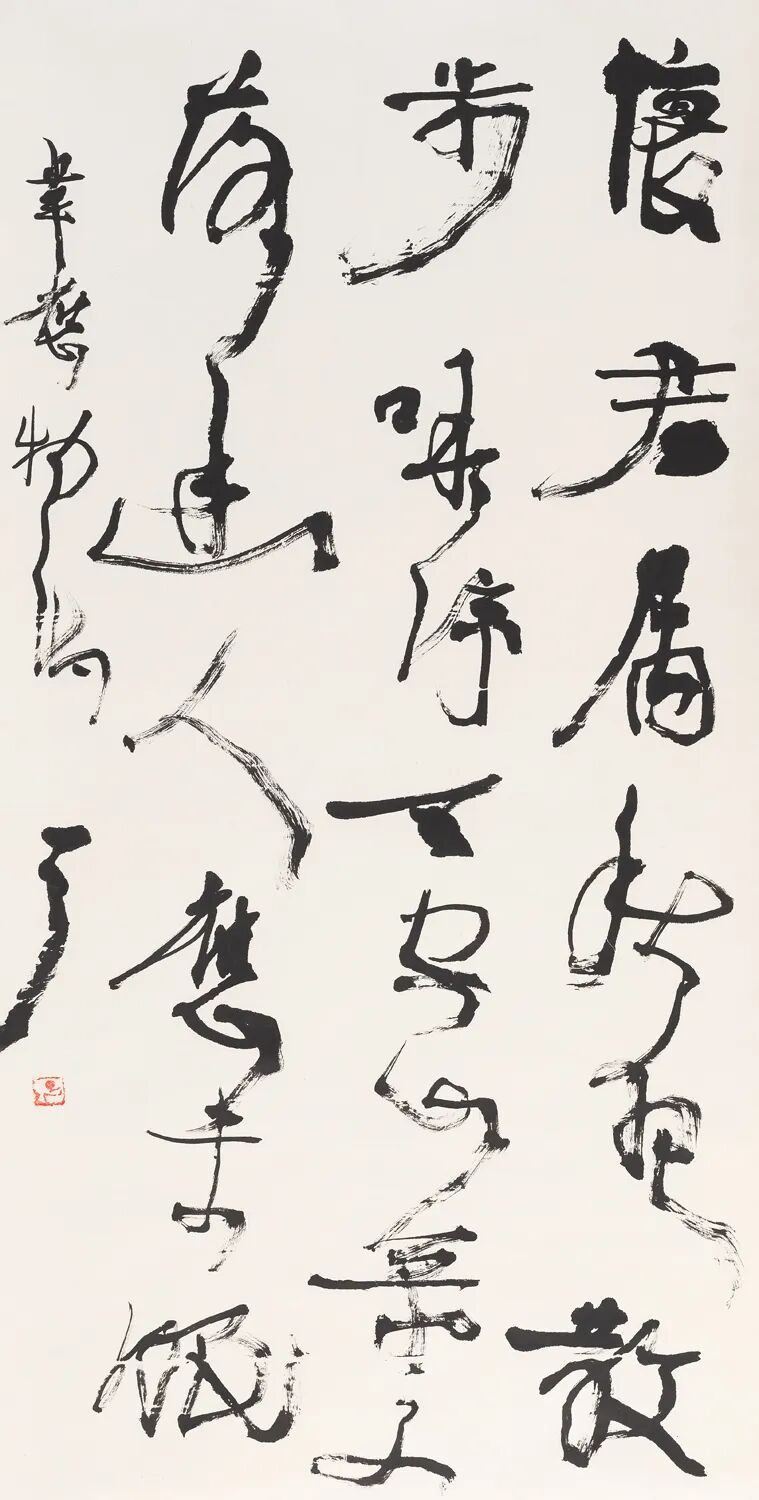 懷君属秋夜散
步咏涼天空山松子
落幽人應未眠
韋應物詩